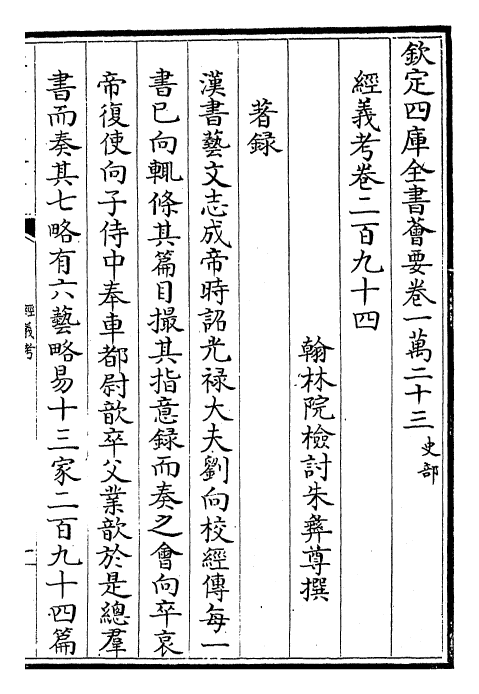 欽定四庫全書薈要卷一萬二十三 史部
經義考卷二百九十四
翰林院檢討朱彝尊撰
著録
漢書藝文志成帝時詔光禄大夫劉向校經傳每一
書已向輒條其篇目撮其指意録而奏之會向卒哀
帝復使向子侍中奉車都尉歆卒父業歆於是總羣
書而奏其七略有六藝略易十三家二百九十四篇
經義考